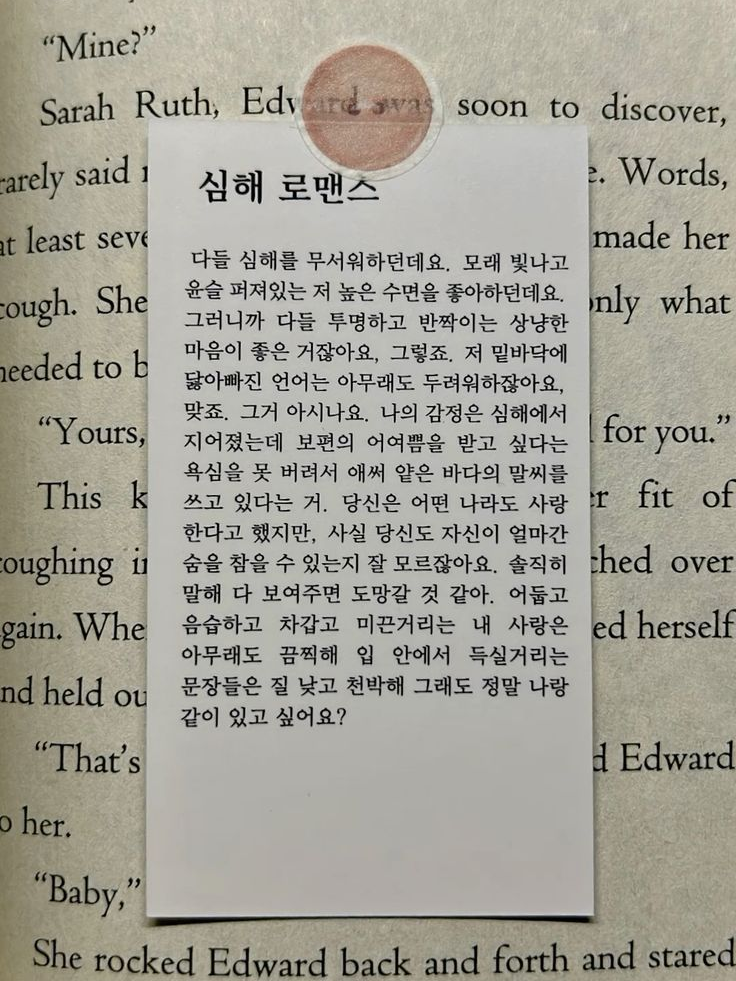 “Mine?”
Sarah Ruth, Edward was soon to discover,
rarely said
e. Words,
at least
made her
cough. She
only what
needed to b
“Yours,
for you.”
This
fit of
coughing
over
again.
herself
and held
“That’s
Edward
to her.
“Baby,”
She rocked Edward back and forth and stared
심해 로맨스
다들 심해를 무서워하던데요. 모래 빛나고
윤슬 퍼져있는 저 높은 수면을 좋아하던데요.
그러니까 다들 투명하고 반짝이는 상냥한
마음이 좋은 거잖아요, 그렇죠. 저 밑바닥에
닳아빠진 언어는 아무래도 두려워하잖아요,
맞죠. 그거 아시나요. 나의 감정은 심해에서
지어졌는데 보편의 어여쁨을 받고 싶다는
욕심을 못 버려서 애써 얕은 바다의 말씨를
쓰고 있다는 거. 당신은 어떤 나라도 사랑
한다고 했지만, 사실 당신도 자신이 얼마간
숨을 참을 수 있는지 잘 모르잖아요. 솔직히
말해 다 보여주면 도망갈 것 같아. 어둡고
음습하고 차갑고 미끈거리는 내 사랑은
아무래도 끔찍해 입 안에서 득실거리는
문장들은 질 낮고 천박해 그래도 정말 나랑
같이 있고 싶어요?